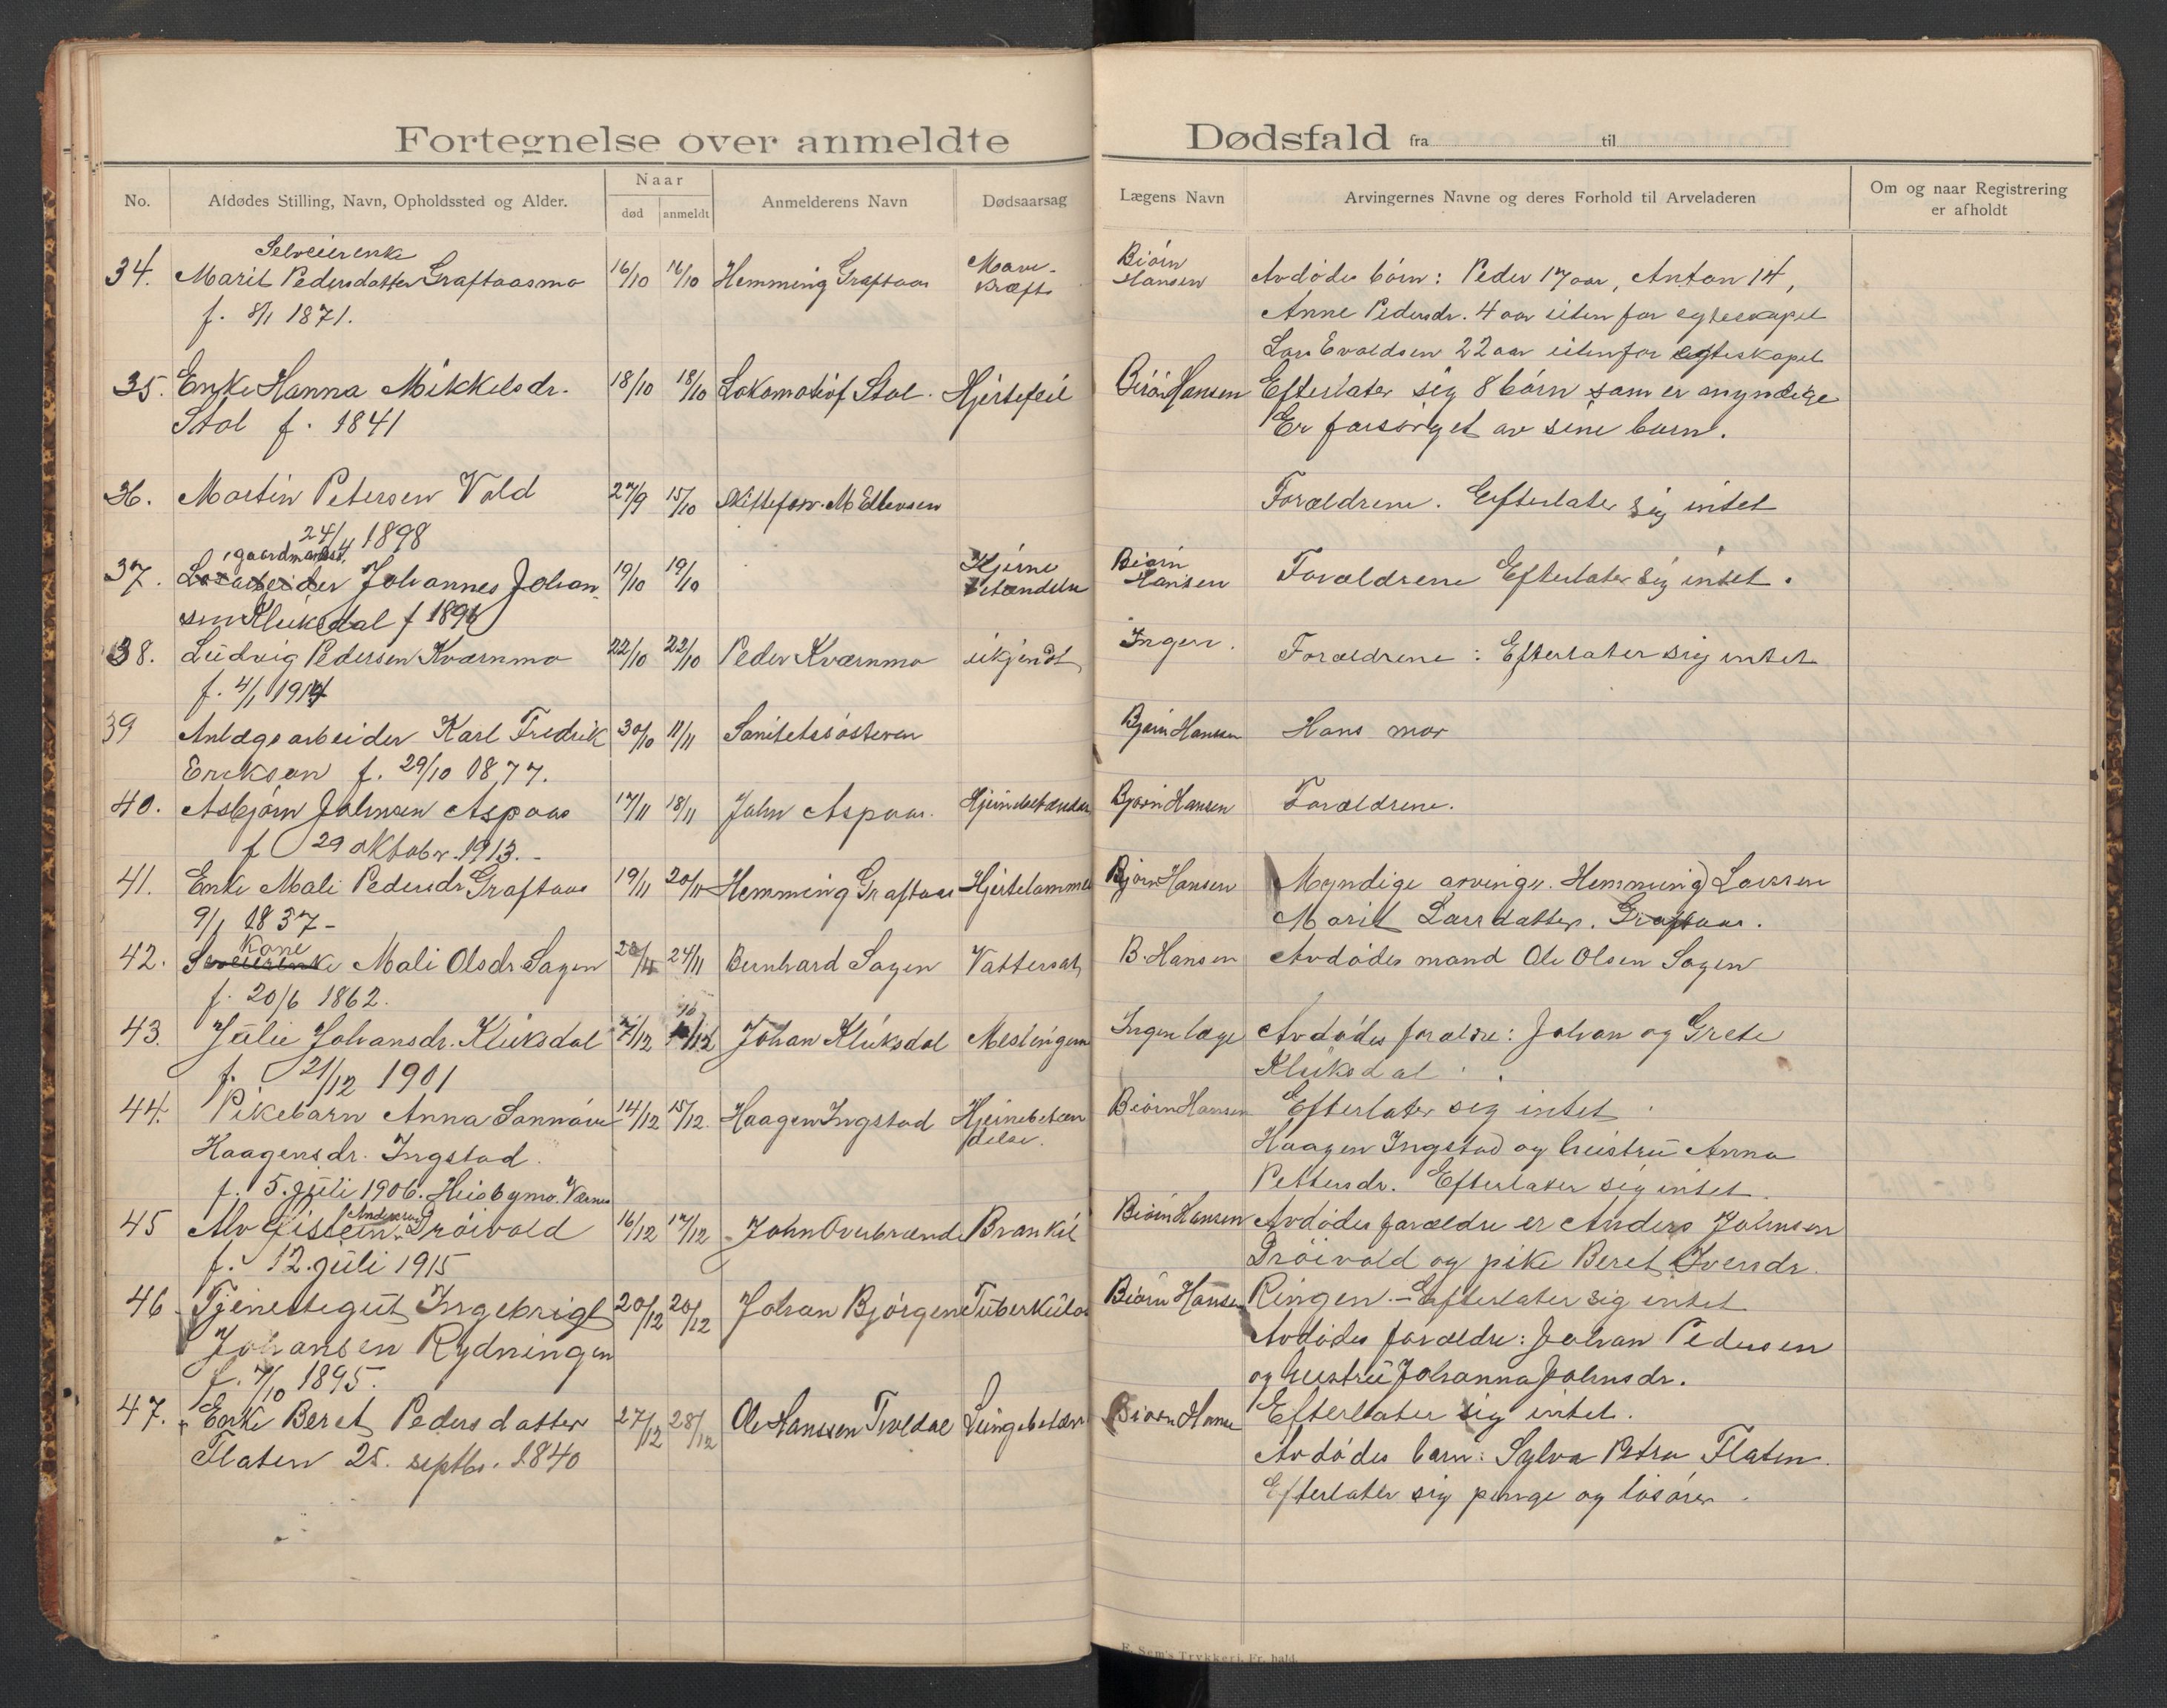 Fortegnelse over anmeldte
Dødsfald fra til
No.
Afdødes Stilling, Navn, Opholdssted og Alder.
Naar
død anmeldt
Anmelderens Navn
Dødsaarsag
Lægens Navn
Arvingernes Navne og deres Forhold til Arveladeren
Om og naar Registrering
er afholdt
Selveierenke
34. Marit Pedersdatter Graftaasmo 16/10 16/10 Hemming Graftaas Mave-
kræft
f. 8/1 1871.
Biörn
Hansen
Avdödes börn: Peder 17 aar, Anton 14,
Anne Pedersdr. 4 aar uten for egteskapet
Lars Evaldsen 22 aar utenfor egteskapet
35. Enke Hanna Mikkelsdr. 18/10 18/10 Lokomotivf. Stol. Hjertefeil
Stol f. 1841
Biörn Hansen Efterlater sig 8 börn som er myndige
Er forsörget av sine barn.
36. Martin Petersen Vold 27/9 15/10 Skifteforv. M Ellevsen
24/4 1898
Forældrene. Efterlater sig intet
gaardmandss.
37. Losarbeider Johannes Johan- 19/10 19/10 Hjerne
betændelse
sen Kluksdal f 1896
Biörn
Hansen
Forældrene Efterlater sig intet.
38. Ludvig Pedersen Kværnmo 22/10 22/10 Peder Kværnmo ukjendt
f. 4/1 1914
Ingen. Forældrene: Efterlater sig intet
39 Anlægsarbeider Karl Fredrik 30/10 11/11 Sanitetssösteren
Erikson f. 29/10 1877.
Bjørn Hansen Hans mor
40. Asbjörn Johnsen Aspaas 17/11 18/11 John Aspaas.
f 29 oktobr. 1913.-
Bjørn Hansen Forældrene.
41. Enke Mali Pedersdr Graftaas 19/11 20/11 Hemming Graftaas Hjertelammel
9/1 1837-
Bjørn Hansen Myndige arvinger. Hemming Larsen
Marit Larsdatter. Graftaas.
Kone
42. Selveierenke Mali Olsdr. Sagen 20/11 24/11 Bernhard Sagen Vattersot
f. 20/6 1862.
B. Hansen Avdödes mand Ole Olsen Sagen
43. Julie Johansdr. Kluksdal 7/12 10/12 Johan Kluksdal Meslingern
f. 21/12 1901
Ingen læge Avdödes forældre: Johan og Grete
Kluksdal.
44. Pikebarn Anna Sannöve 14/12 15/12. Haagen Ingstad Hjernebetæn
delse.
Haagensdr. Ingstad.
f. 5. juli 1906. Husbymo. Værnes
Biörn Hansen Efterlater sig intet.
Haagen Ingstad og hustru Anna
Pettersdr. Efterlater sig intet.
Anderssen
45 Alv Eistein Dröivold 16/12 17/12 John Overbrænde Brankil
f. 12. juli 1915
Biörn Hansen Avdödes forældre er Anders Johnsen
Dröivold og pike Beret Iversdr.
46 Tjenestegut Ingebrigt 20/12 20/12 Johan Bjørgen Tuberkulos
Johansen Rydningen
f. 7/10 1895.
Biörn Hansen Ringen. - Efterlater sig intet
Avdödes forældre: Johan Pedersen
og hustru Johanna Johnsdr.
47. Enke Beret Pedersdatter 27/12 28/12 Ole Hanssen Tveldal Lungebetæn
Flaten 25. septbr. 1840
Biørn Hanse Efterlater sig intet.
Avdödes barn: Sylva Petra Flaten.
Efterlater sig penge og lösöre.
F. Sem's Trykkeri, Fr.hald.